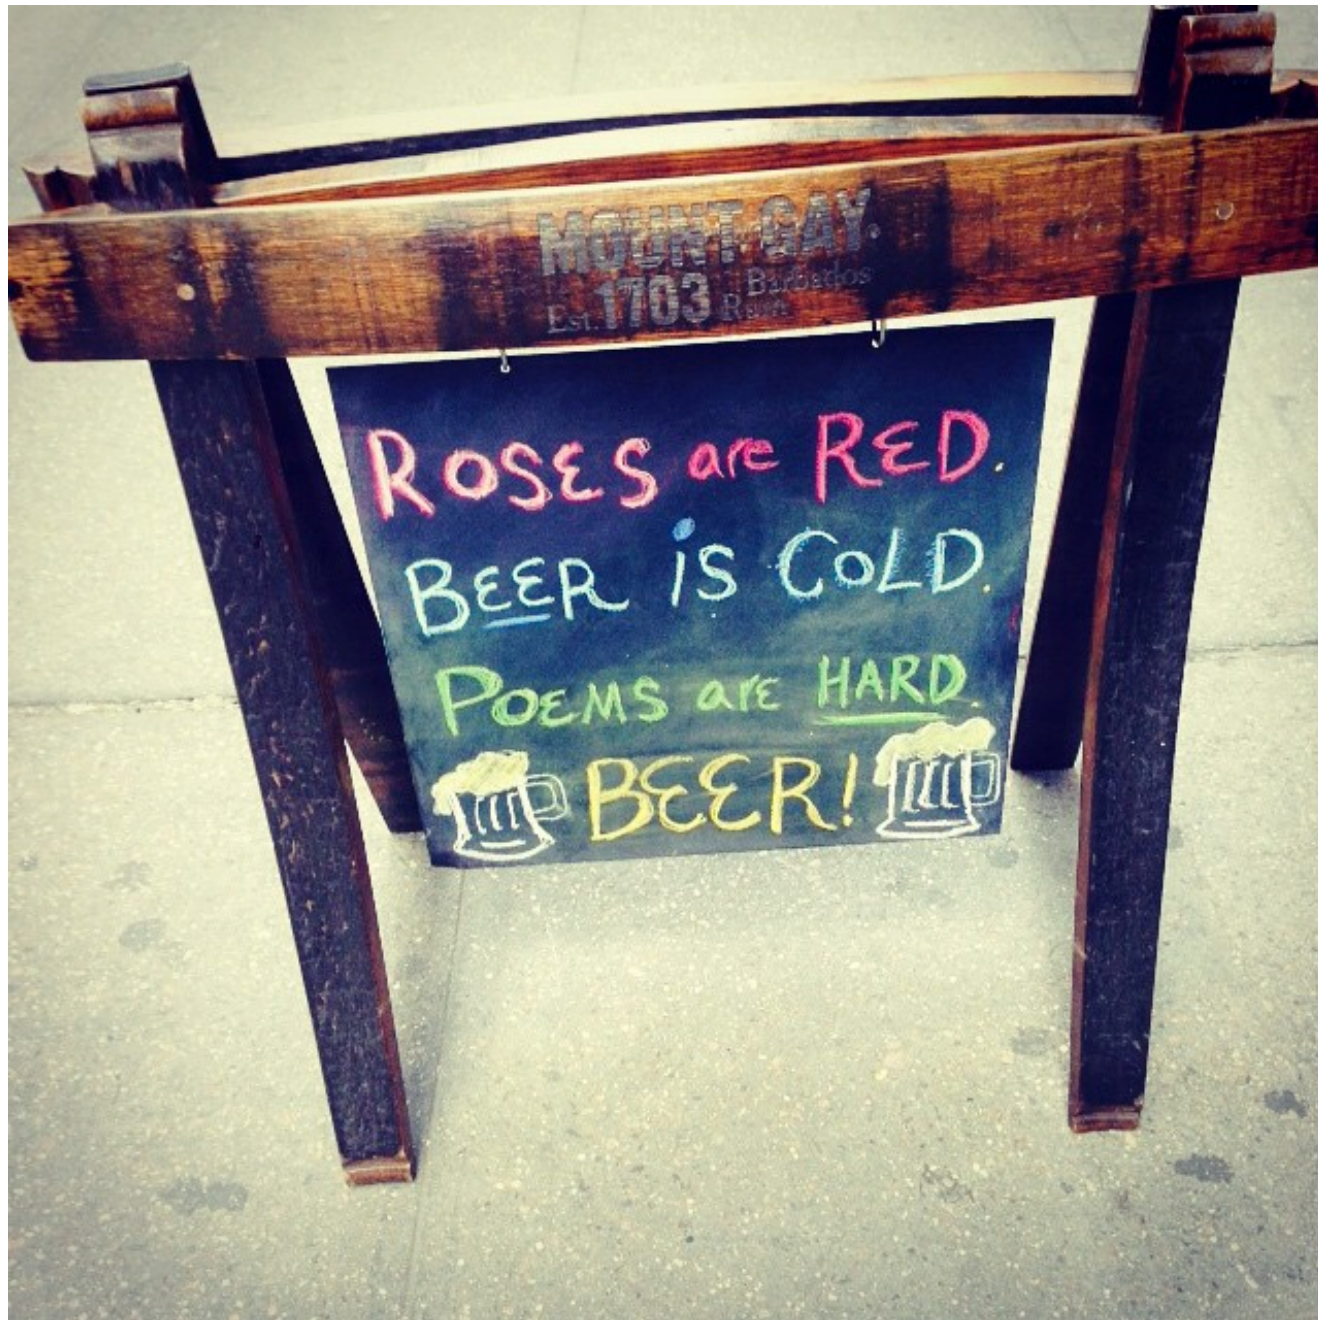 MOUNT GAY.
Est. 1703 Barbados Rum
ROSES are RED.
BEER iS COLD.
POEMS are HARD.
BEER!